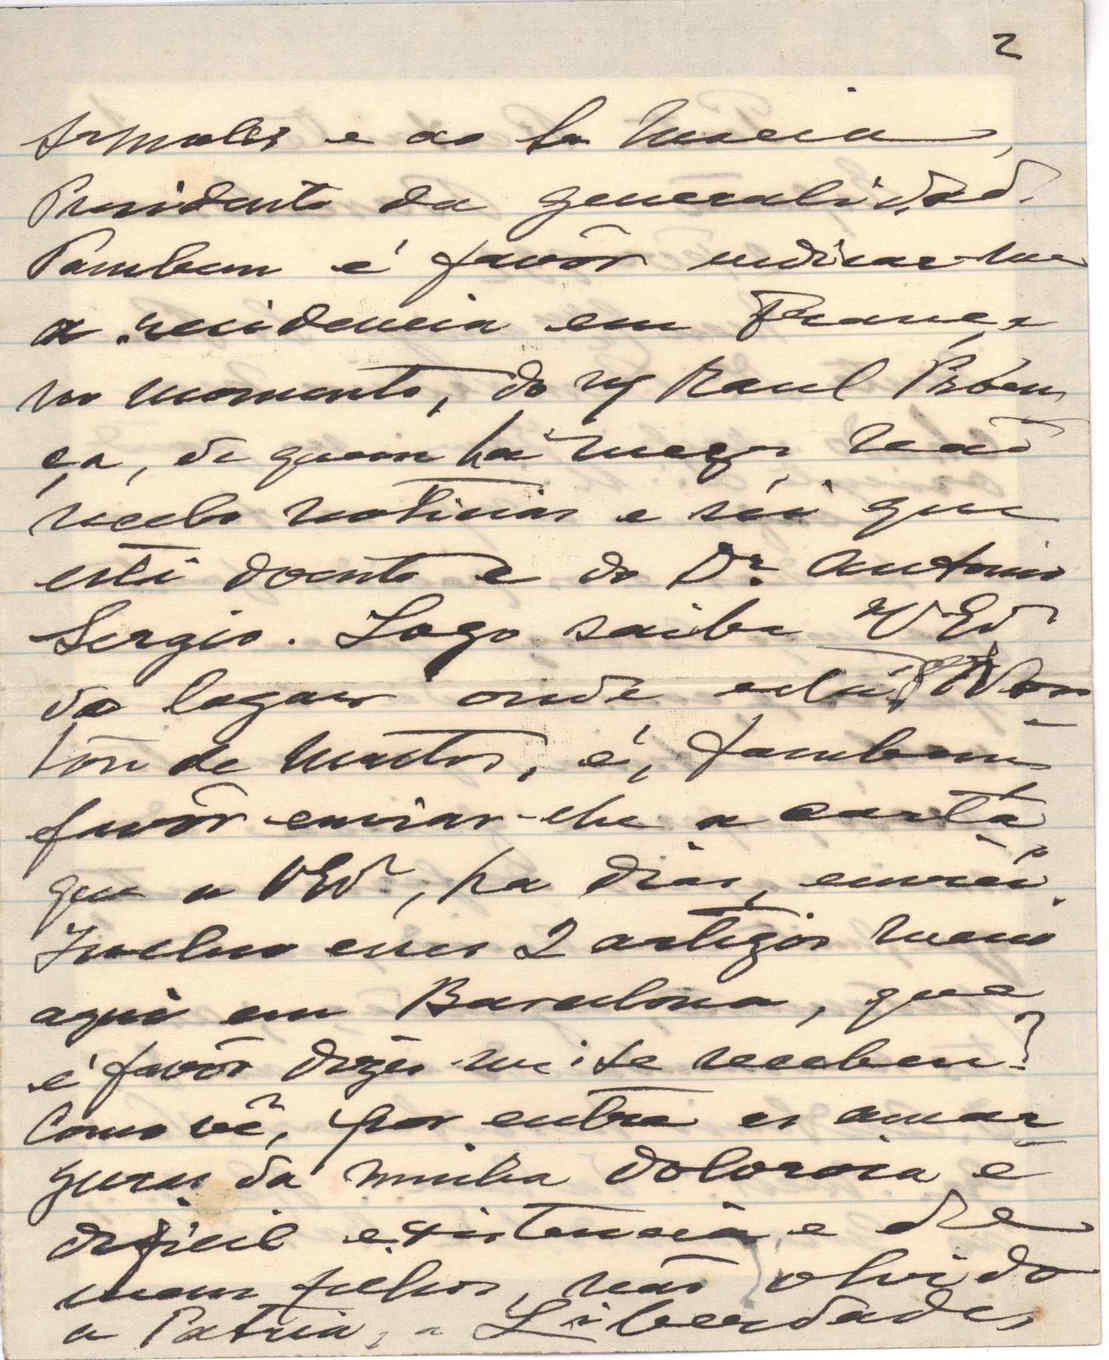 2
e ao Sr Macia,
Presidente da generalidad.
Tambem é favôr indicar-me
a residencia em França,
no momento, do Raul Proen
ça, de quem há mezes não
recebo noticias e sei que
está doente e do Dr. Antonio
Sergio. Logo saiba V Exª
do logar onde está Nor
ton de Mattos, é, tambem,
favôr enviar-lhe a carta
que a V Exª, ha dias, enviei.
Incluo eses 2 artigos meus
aqui em Barcelona, que
é favôr dizer-me se receben?
Como vê, por entre as amar
guras da minha dolorosa e
dificil existencia e de
meus filhos, não olvido
a Patria, a Liberdade,